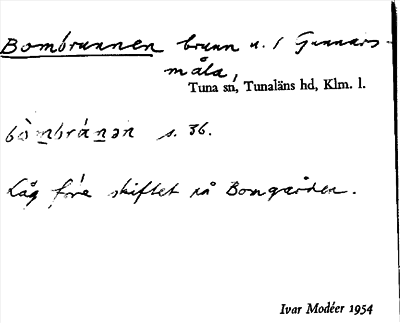 Bombrunnen brunn n. 1 Gunnars-
måla,
Tuna sn, Tunaläns hd, Klm. l.
bòmbránən s. 36.
Låg före skiftet på Bomgården.
Ivar Modéer 1954